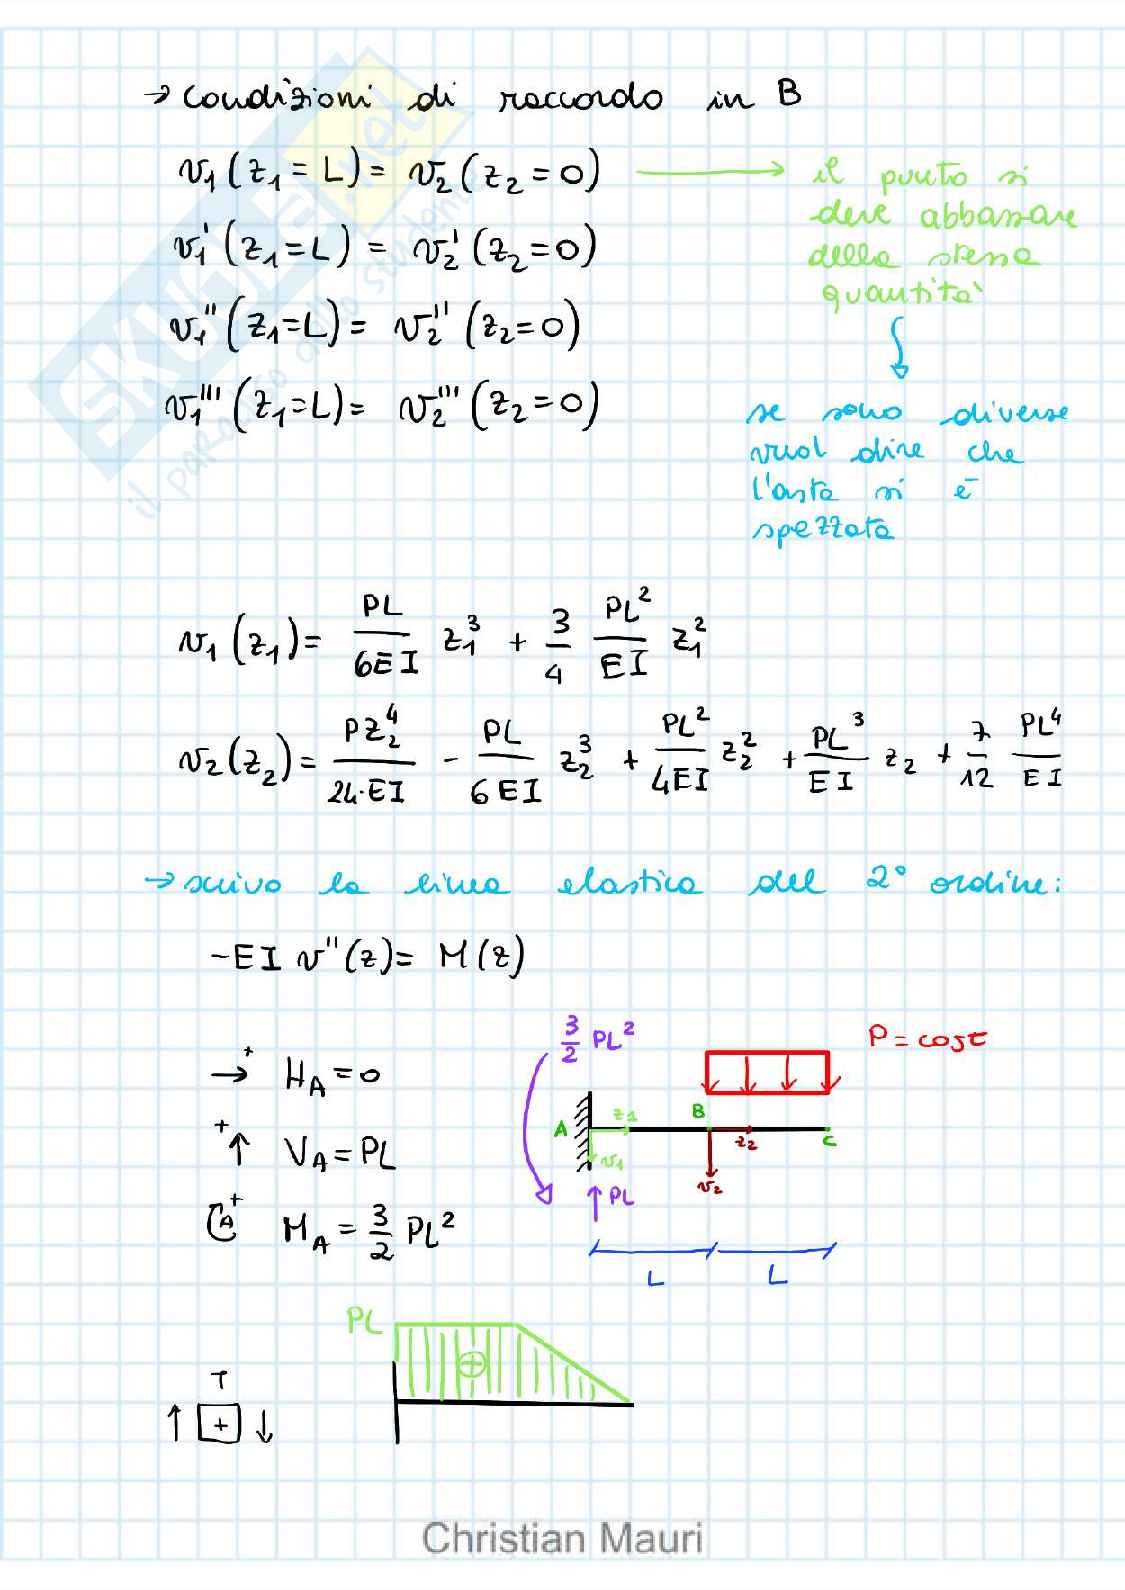 → condizioni di raccordo in B
v₁(z₁ = L) = v₂(z₂ = 0) → il punto si
deve abbassare
della stessa
quantità
v₁'(z₁=L) = v₂'(z₂=0)
v₁''(z₁=L) = v₂''(z₂=0)
v₁'''(z₁=L) = v₂'''(z₂=0)
se sono diverse
vuol dire che
l'asta si è
spezzata
v₁(z₁) = PL/6EI z₁³ + 3/4 PL²/EI z₁²
v₂(z₂) = PZ₂⁴/24·EI - PL/6EI z₂³ + PL²/4EI z₂² + PL³/EI z₂ + 7/12 PL⁴/EI
→ scrivo la linea elastica del 2° ordine:
-EI v''(z) = M(z)
→+ H_A = 0
+↑ V_A = PL
A+ M_A = 3/2 PL²
3/2 PL²
P = cost
A
z₁
B
z₂
C
v₁
v₂
↑ PL
L
L
PL
+
T
↑ + ↓
SKUOLA.net
il paradiso dello studente
Christian Mauri